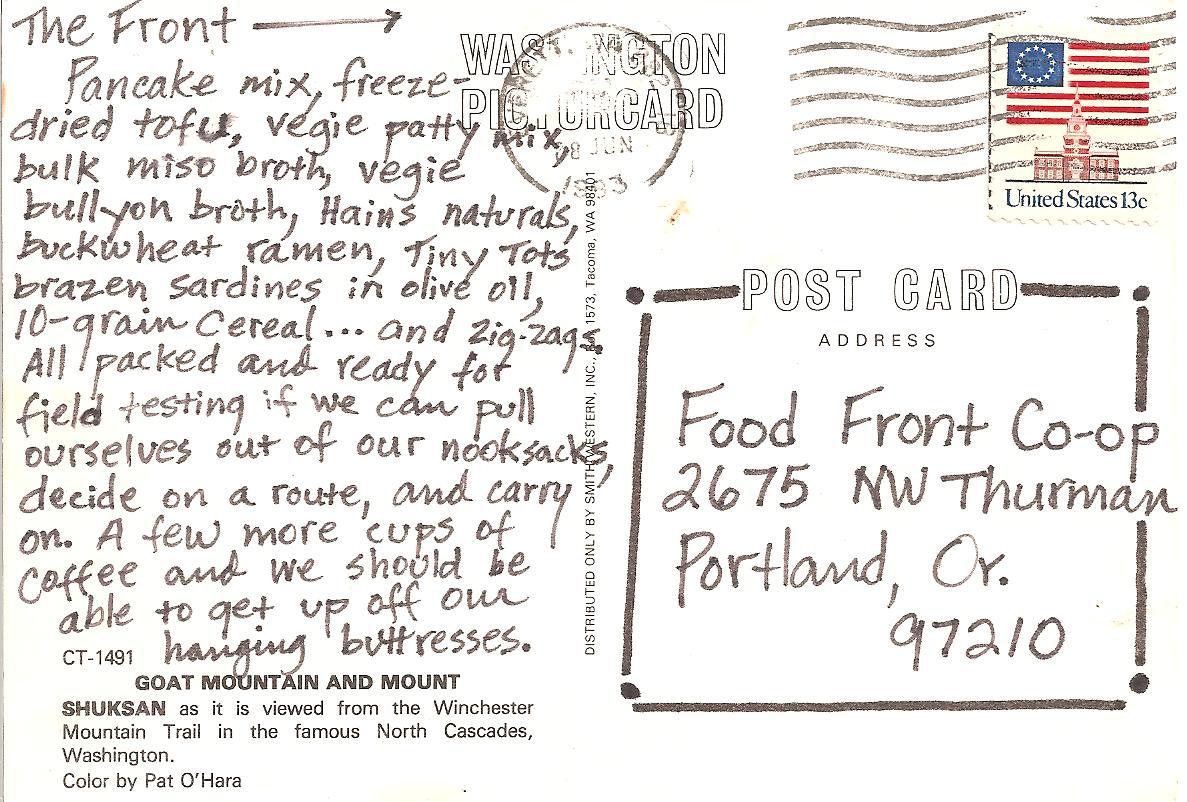 The Front
Pancake mix, freeze-
dried tofu, vegie patty mix,
bulk miso broth, vegie
bullyon broth, Hains naturals,
buckwheat ramen, Tiny Tots
brazen sardines in olive oil,
10-grain cereal... and zig-zags.
All packed and ready for
field testing if we can pull
ourselves out of our nooksacks,
decide on a route, and carry
on. A few more cups of
coffee and we should be
able to get up off our
hanging buttresses.
CT-1491
GOAT MOUNTAIN AND MOUNT
SHUKSAN as it is viewed from the Winchester
Mountain Trail in the famous North Cascades,
Washington.
Color by Pat O'Hara
WASHINGTON
PICTURCARD
JUN
DISTRIBUTED ONLY BY SMITH WESTERN, INC., Box 1573, Tacoma, WA 98401
United States 13c
POST CARD
ADDRESS
Food Front Co-op
2675 NW Thurman
Portland, Or.
97210